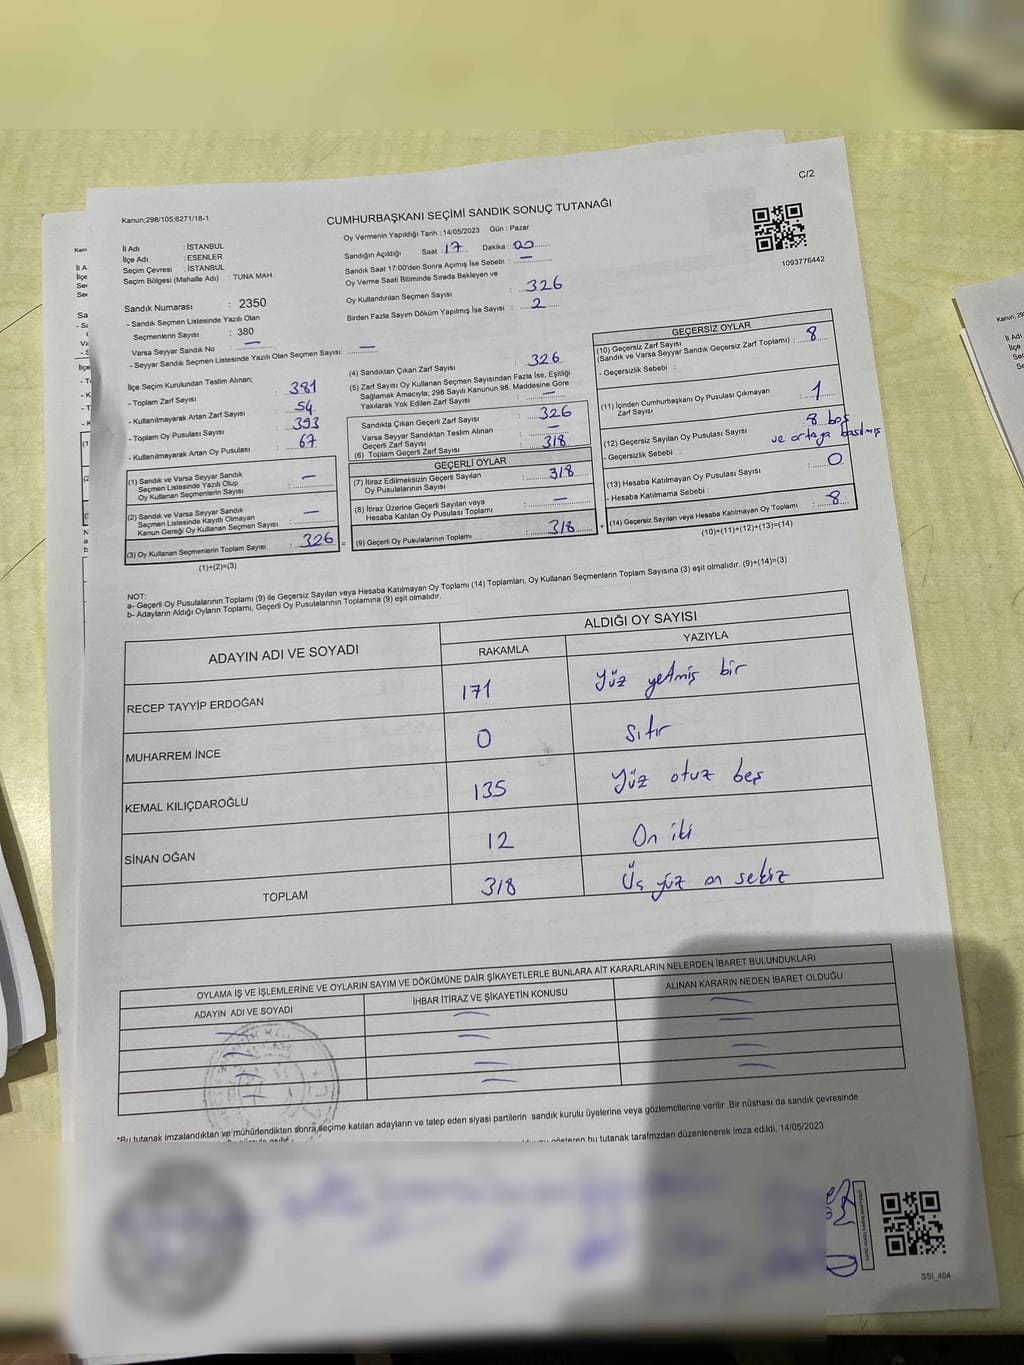 C/2
Kanun;298/105;6271/18-1
CUMHURBAŞKANI SEÇİMİ SANDIK SONUÇ TUTANAĞI
1093776442
İl Adı : İSTANBUL
İlçe Adı : ESENLER
Seçim Çevresi : İSTANBUL
Seçim Bölgesi (Mahalle Adı) : TUNA MAH.
Sandık Numarası : 2350
- Sandık Seçmen Listesinde Yazılı Olan
Seçmenlerin Sayısı : 380
Varsa Seyyar Sandık No : —
- Seyyar Sandık Seçmen Listesinde Yazılı Olan Seçmen Sayısı: —
İlçe Seçim Kurulundan Teslim Alınan;
- Toplam Zarf Sayısı : 381
- Kullanılmayarak Artan Zarf Sayısı : 54
- Toplam Oy Pusulası Sayısı : 393
- Kullanılmayarak Artan Oy Pusulası : 67
(1) Sandık ve Varsa Seyyar Sandık
Seçmen Listesinde Yazılı Olup
Oy Kullanan Seçmenlerin Sayısı : —
(2) Sandık ve Varsa Seyyar Sandık
Seçmen Listesinde Kayıtlı Olmayan
Kanun Gereği Oy Kullanan Seçmen Sayısı : —
(3) Oy Kullanan Seçmenlerin Toplam Sayısı : 326
(1)+(2)=(3)
Oy Vermenin Yapıldığı Tarih : 14/05/2023 Gün : Pazar
Sandığın Açıldığı Saat : 17 Dakika : 00
Sandık Saat 17:00'den Sonra Açımış İse Sebebi : —
Oy Verme Saati Bitiminde Sırada Bekleyen ve
Oy Kullandırılan Seçmen Sayısı : 326
Birden Fazla Sayım Döküm Yapılmış İse Sayısı : 2
(4) Sandıktan Çıkan Zarf Sayısı : 326
(5) Zarf Sayısı Oy Kullanan Seçmen Sayısından Fazla İse, Eşitliği
Sağlamak Amacıyla; 298 Sayılı Kanunun 98. Maddesine Göre
Yakılarak Yok Edilen Zarf Sayısı : —
Sandıkta Çıkan Geçerli Zarf Sayısı : 326
Varsa Seyyar Sandıktan Teslim Alınan
Geçerli Zarf Sayısı : —
(6) Toplam Geçerli Zarf Sayısı : 318
GEÇERLİ OYLAR
(7) İtiraz Edilmeksizin Geçerli Sayılan
Oy Pusulalarının Sayısı : 318
(8) İtiraz Üzerine Geçerli Sayılan veya
Hesaba Katılan Oy Pusulası Toplamı : —
(9) Geçerli Oy Pusulalarının Toplamı : 318
GEÇERSİZ OYLAR
(10) Geçersiz Zarf Sayısı
(Sandık ve Varsa Seyyar Sandık Geçersiz Zarf Toplamı) : 8
- Geçersizlik Sebebi :
(11) İçinden Cumhurbaşkanı Oy Pusulası Çıkmayan
Zarf Sayısı : 1
(12) Geçersiz Sayılan Oy Pusulası Sayısı : 8 boş
- Geçersizlik Sebebi : ve ortaya basılmış
(13) Hesaba Katılmayan Oy Pusulası Sayısı : 0
- Hesaba Katılmama Sebebi :
(14) Geçersiz Sayılan veya Hesaba Katılmayan Oy Toplamı : 8
(10)+(11)+(12)+(13)=(14)
NOT:
a- Geçerli Oy Pusulalarının Toplamı (9) ile Geçersiz Sayılan veya Hesaba Katılmayan Oy Toplamı (14) Toplamları, Oy Kullanan Seçmenlerin Toplam Sayısına (3) eşit olmalıdır. (9)+(14)=(3)
b- Adayların Aldığı Oyların Toplamı, Geçerli Oy Pusulalarının Toplamına (9) eşit olmalıdır.
ADAYIN ADI VE SOYADI ALDIĞI OY SAYISI
RAKAMLA YAZIYLA
RECEP TAYYİP ERDOĞAN 171 Yüz yetmiş bir
MUHARREM İNCE 0 Sıfır
KEMAL KILIÇDAROĞLU 135 Yüz otuz beş
SİNAN OĞAN 12 On iki
TOPLAM 318 Üç yüz on sekiz
OYLAMA İŞ VE İŞLEMLERİNE VE OYLARIN SAYIM VE DÖKÜMÜNE DAİR ŞİKAYETLERLE BUNLARA AİT KARARLARIN NELERDEN İBARET BULUNDUKLARI
ADAYIN ADI VE SOYADI İHBAR İTİRAZ VE ŞİKAYETİN KONUSU ALINAN KARARIN NEDEN İBARET OLDUĞU
*Bu tutanak imzalandıktan ve mühürlendikten sonra,seçime katılan adayların ve talep eden siyasi partilerin sandık kurulu üyelerine veya gözlemcilerine verilir .Bir nüshası da sandık çevresinde
gösteren bu tutanak tarafmzdan düzenlenerek imza edildi, 14/05/2023
SSI_404